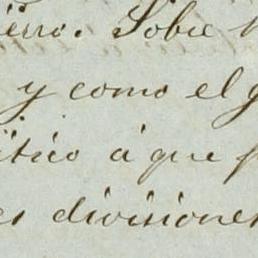 ierro. Sobre
y como el g
itico á que
es divisiones